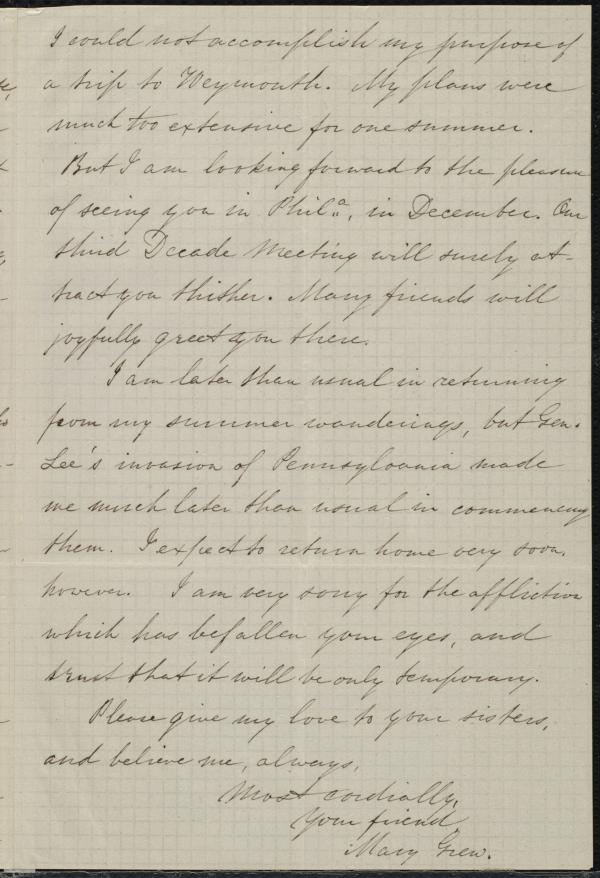 I could not accomplish my purpose of
a trip to Weymouth. My plans were
much too extensive for one summer.
But I am looking forward to the pleasure
of seeing you in Phil.a, in December. Our
third Decade Meeting will surely at-
tract you thither. Many friends will
joyfully greet you there.
I am later than usual in returning
from my summer wanderings, but Gen.
Lee's invasion of Pennsylvania made
me much later than usual in commencing
them. I expect to return home very soon,
however. I am very sorry for the affliction
which has befallen your eyes, and
trust that it will be only temporary.
Please give my love to your sisters,
and believe me, always,
Most cordially,
Your friend,
Mary Grew.